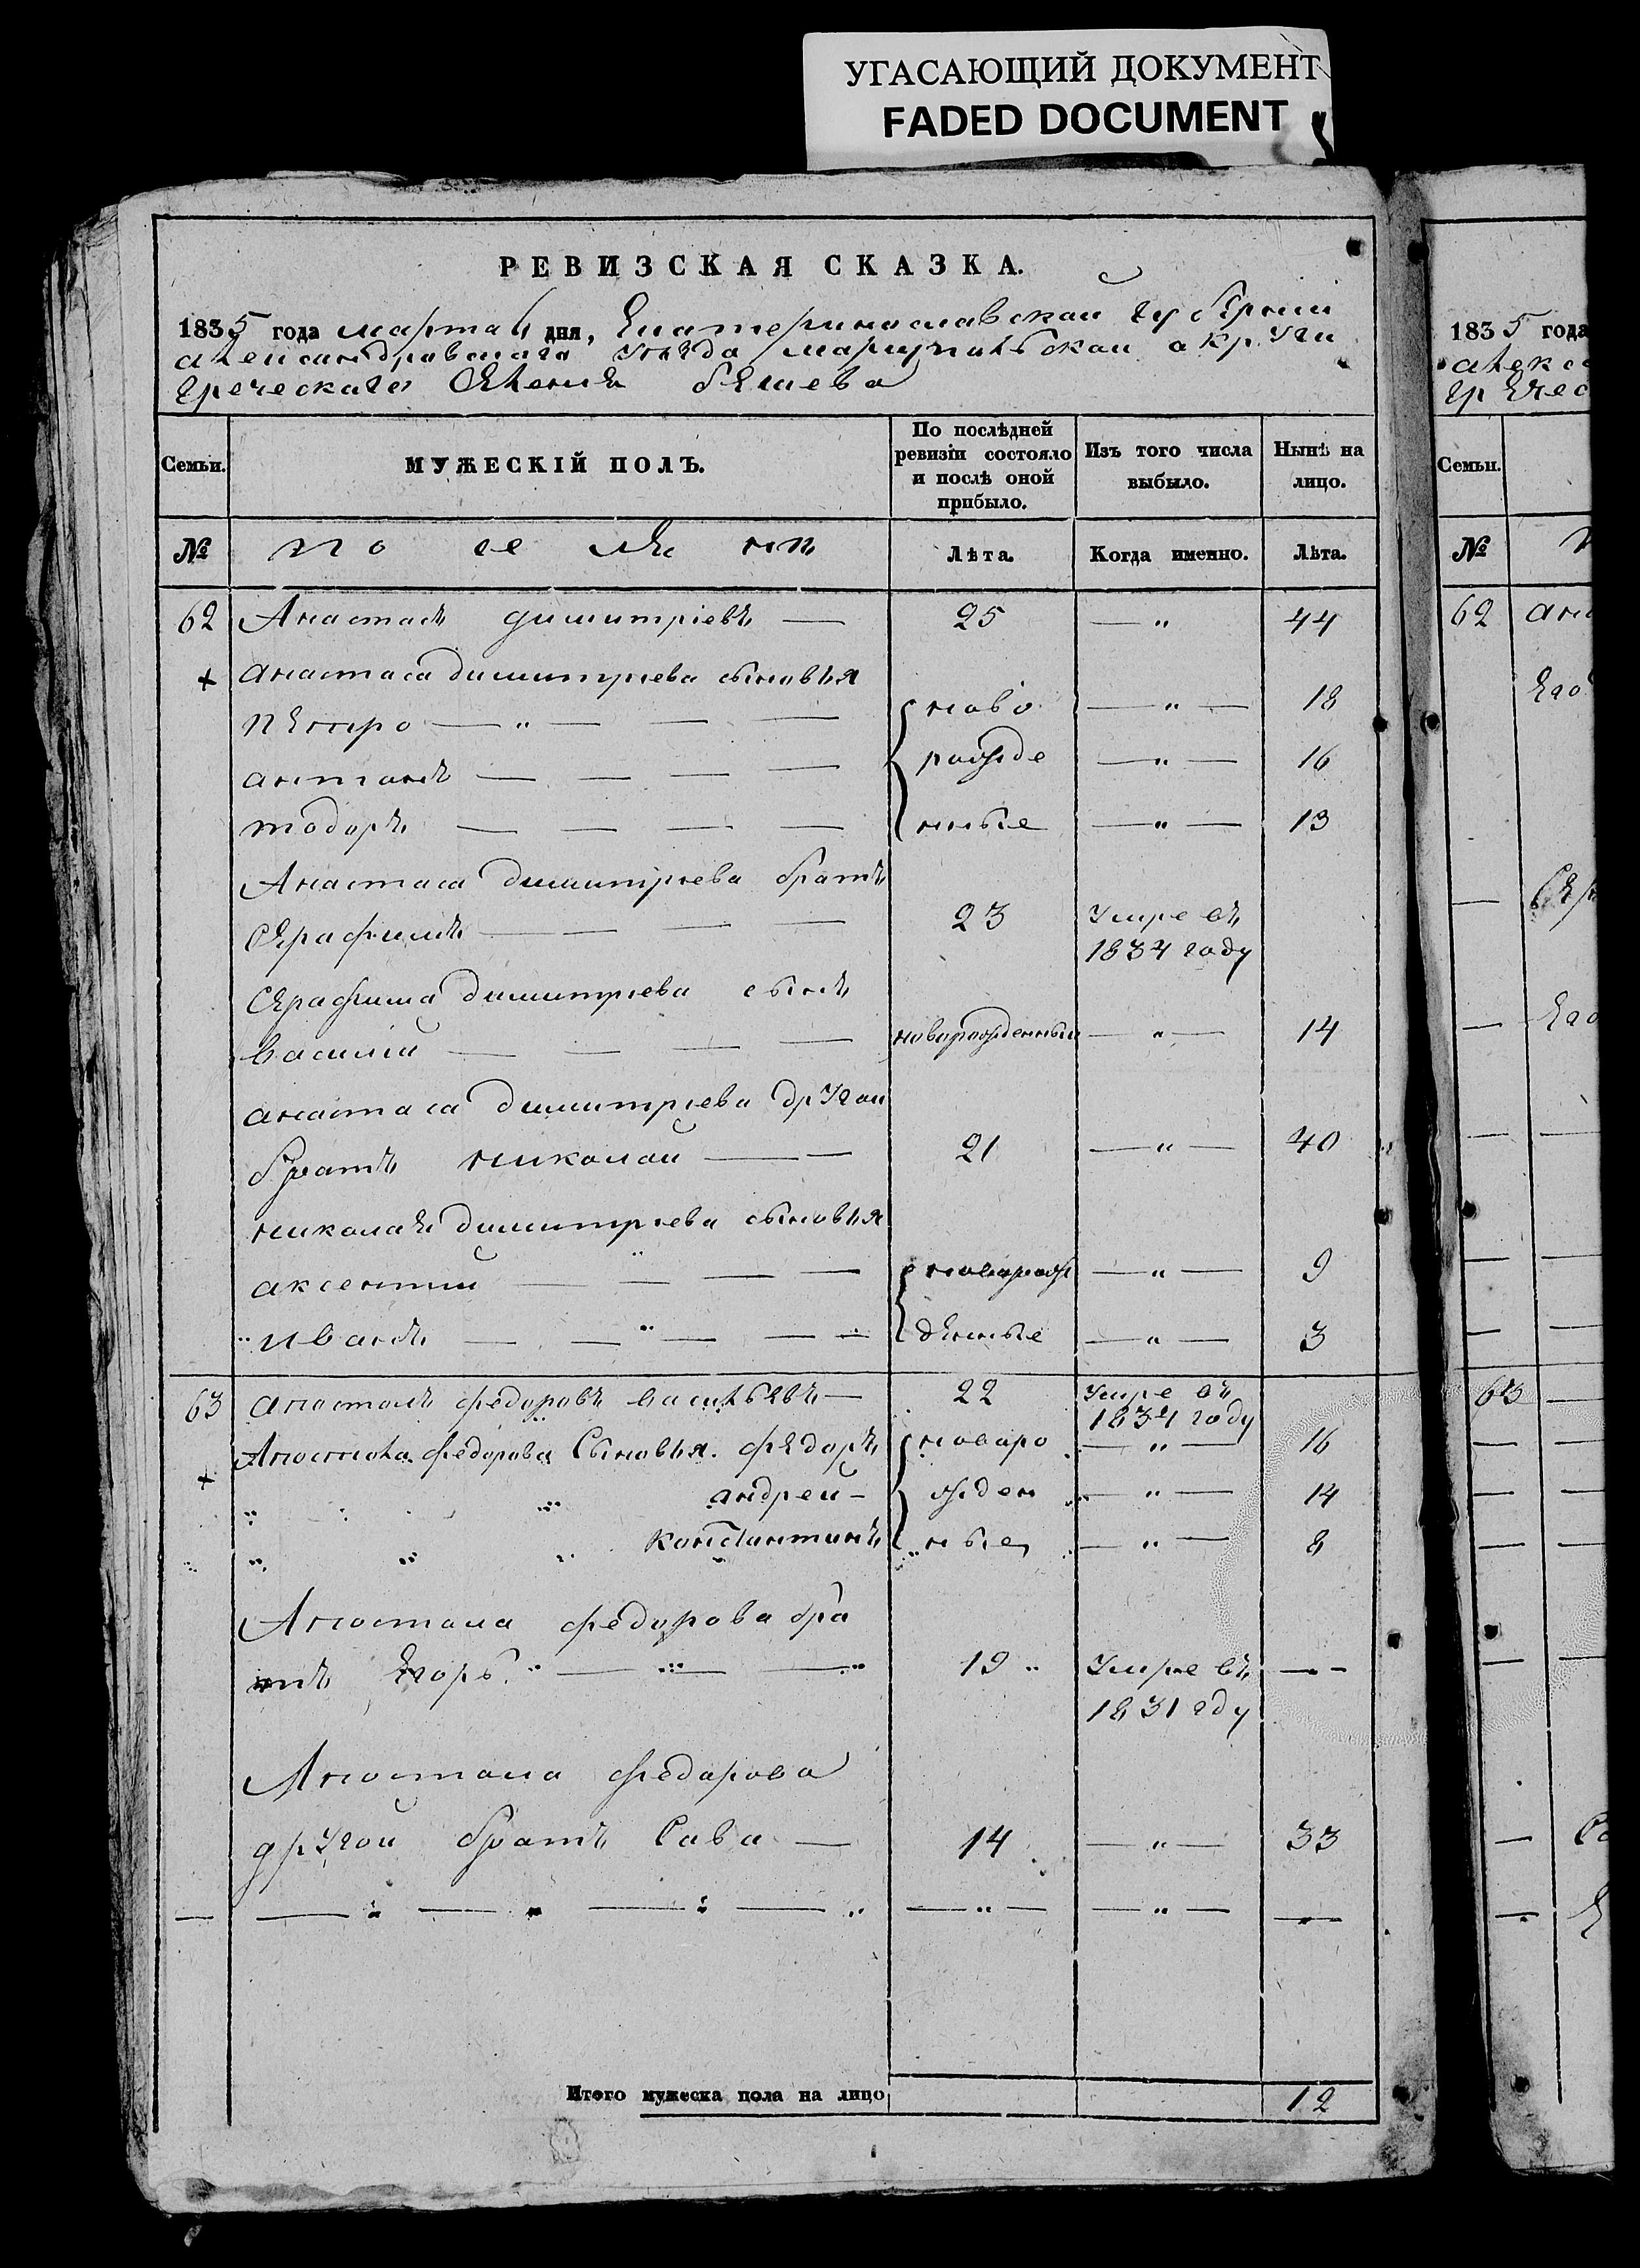 УГАСАЮЩИЙ ДОКУМЕНТ
FADED DOCUMENT
РЕВИЗСКАЯ СКАЗКА.
1835 года марта 6 дня, Екатеринославской губернии
александравскаго уезда мариупольской округи
греческаго селения бешева
Семьи.
МУЖЕСКІЙ ПОЛЪ.
По послѣдней ревизіи состояло и послѣ оной прибыло.
Изъ того числа выбыло.
Нынѣ на лицо.
№
поселяни
Лѣта.
Когда именно.
Лѣта.
62 Анастасъ димитріевъ — 25 — „ 44
+ анастаса димитриева сыновья
петро — „ — — — ново — „ — 18
антонъ — — — — рожде — „ — 16
тодоръ — — — — нные — „ — 13
Анастаса димитриева братъ
Серафимъ — — — — 23 Умре въ
1834 году
Серафима димитриева сынъ
василий — — — — новорожденный — „ — 14
анастаса димитриева другой
братъ николай — — 21 — „ — 40
николая димитриева сыновья
аксентий — — — — оворож — „ — 9
иванъ — — „ — — денные — „ — 3
63 апостолъ федоровъ васильевъ — 22 Умре въ
1834 году
Апостола федорова Сыновья. федоръ новоро — „ — 16
+ андрей — жден — „ — 14
Константинъ ные — „ — 8
Апостола федорова бра
тъ Егоръ „ — — — 19 „ Умре въ — -
1831 году
Апостола федорова
другой братъ Сава — 14 — „ — 33
Итого мужеска пола на лицо 12
1835 года
алекс
грече
Семьи.
№
62 ана
Сер
63